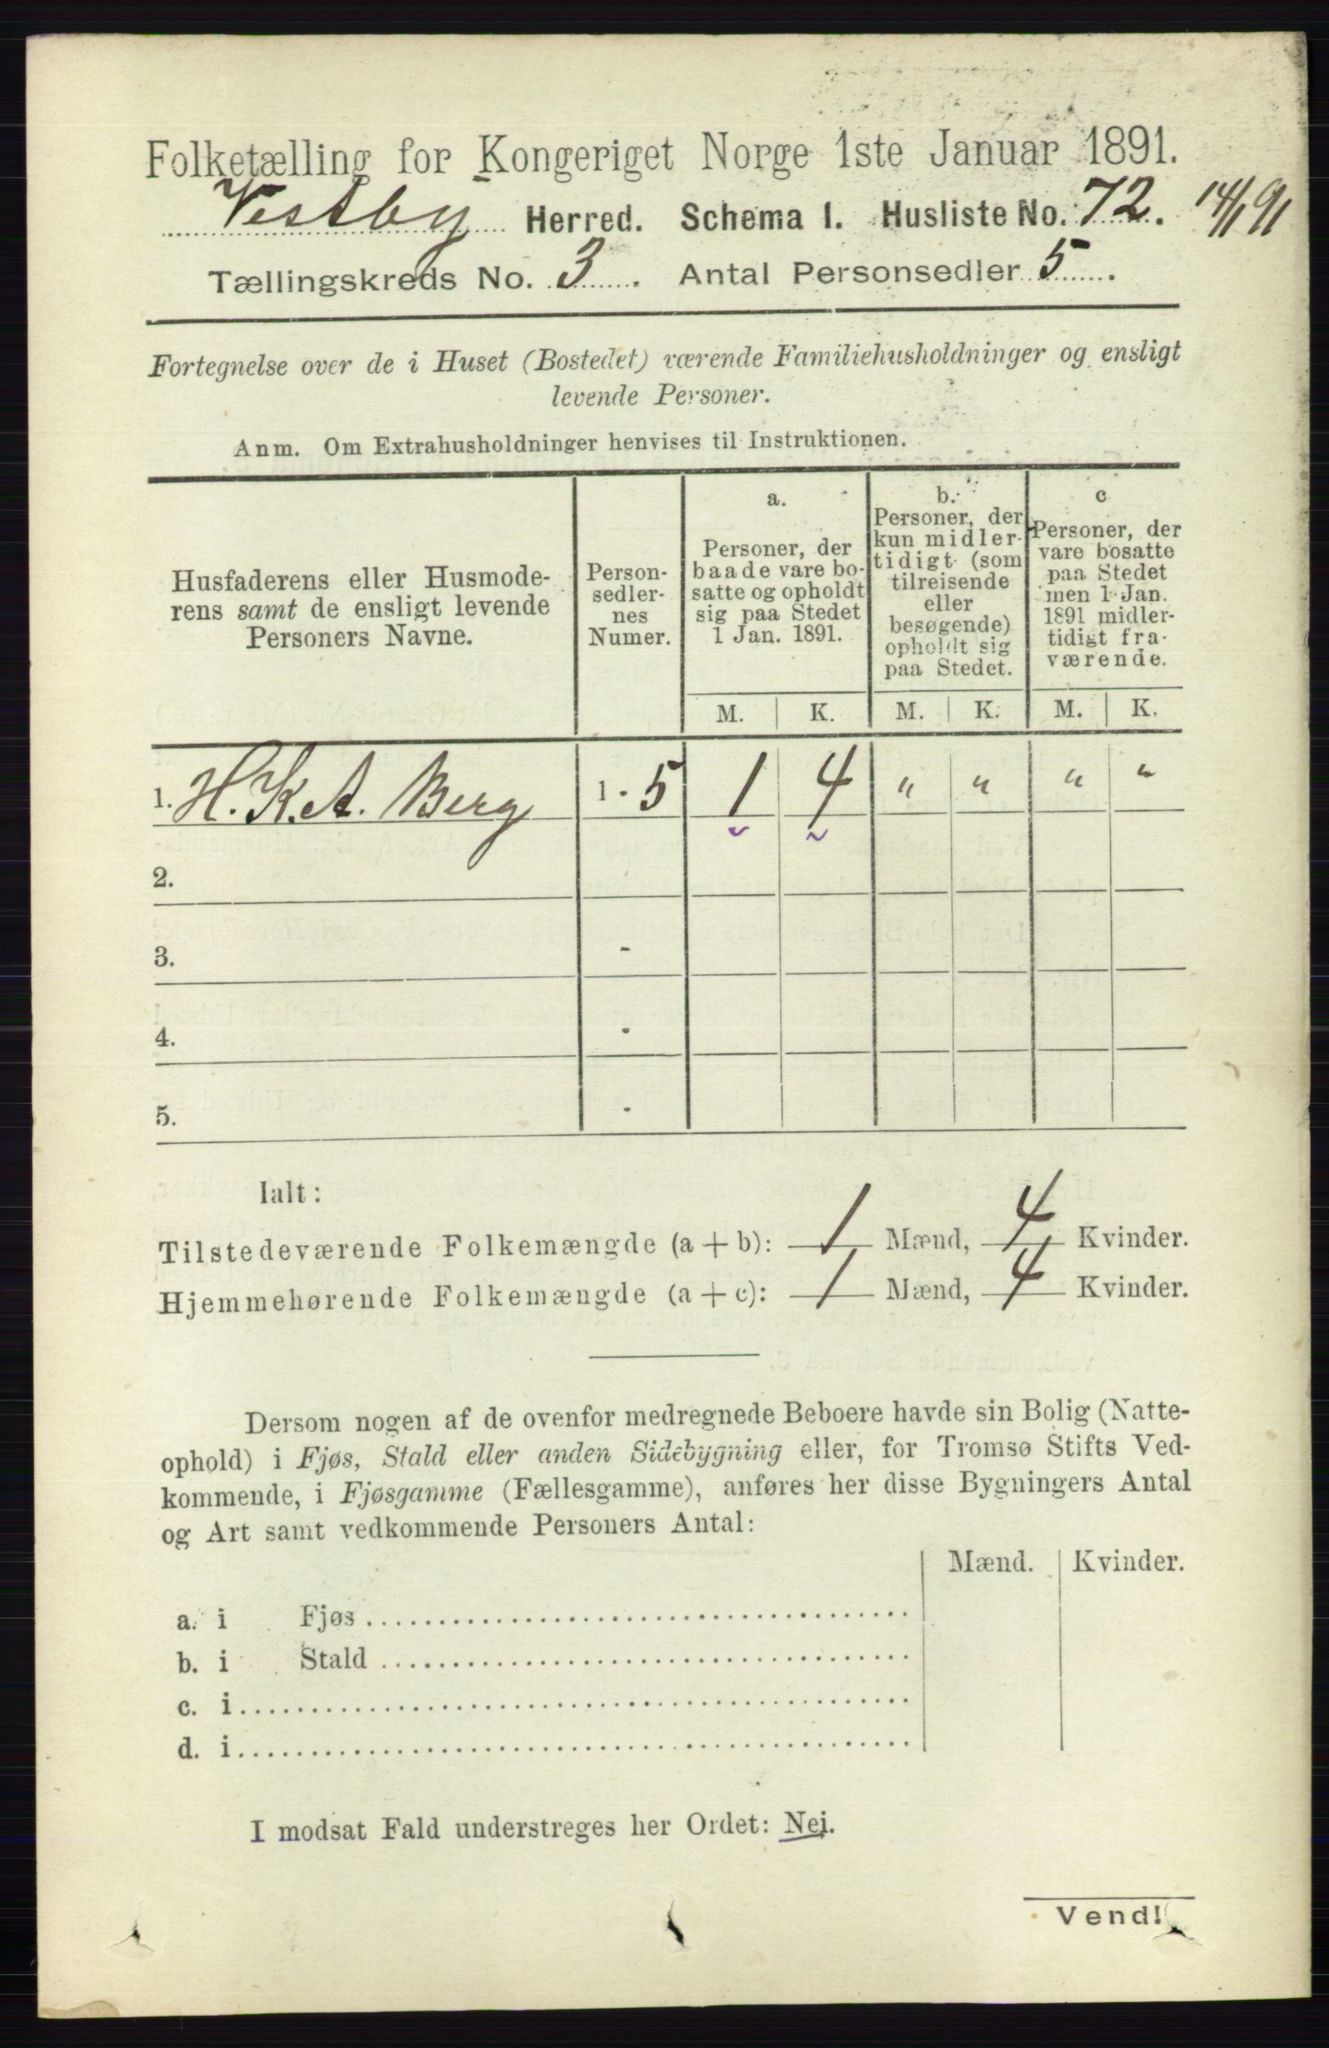 Folketælling for Kongeriget Norge 1ste Januar 1891.
Vestby Herred. Schema I. Husliste No. 72. 14/1 91
Tællingskreds No. 3. Antal Personsedler 5.
Fortegnelse over de i Huset (Bostedet) værende Familiehusholdninger og ensligt
levende Personer.
Anm. Om Extrahusholdninger henvises til Instruktionen.
Husfaderens eller Husmode-
rens samt de ensligt levende
Personers Navne.
Person-
sedler-
nes
Numer.
a.
Personer, der
baade vare bo-
satte og opholdt
sig paa Stedet
1 Jan. 1891.
b.
Personer, der
kun midler-
tidigt (som
tilreisende
eller
besøgende)
opholdt sig
paa Stedet.
c
Personer, der
vare bosatte
paa Stedet
men 1 Jan.
1891 midler-
tidigt fra-
værende.
M. K. M. K. M. K.
1. H. K. A. Berg 1 - 5 1 4 " " " "
2.
3. -
4. -
5. -
Ialt:
Tilstedeværende Folkemængde (a + b): 1 Mænd, 4 Kvinder.
Hjemmehørende Folkemængde (a + c): 1 Mænd, 4 Kvinder.
Dersom nogen af de ovenfor medregnede Beboere havde sin Bolig (Natte-
ophold) i Fjøs, Stald eller anden Sidebygning eller, for Tromsø Stifts Ved-
kommende, i Fjøsgamme (Fællesgamme), anføres her disse Bygningers Antal
og Art samt vedkommende Personers Antal:
Mænd. Kvinder.
a. i Fjøs
b. i Stald
c. i
d. i
I modsat Fald understreges her Ordet: Nei.
Vend!